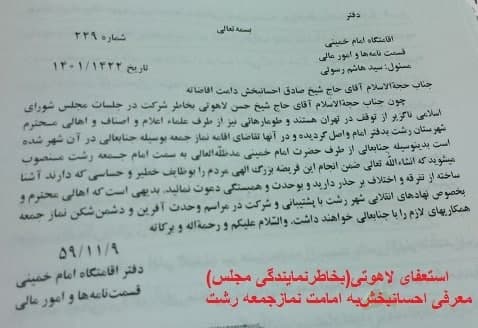 دفتر
بسمه تعالی
اقامتگاه امام خمینی
شماره ۲۲۹
قسمت نامه‌ها و امور مالی
تاریخ ۱۴۰۱/۱۳۲۲
مسئول: سید هاشم رسولی
جناب حجةالاسلام آقای حاج شیخ صادق احسانبخش دامت افاضاته
چون جناب حجةالاسلام آقای حاج شیخ حسن لاهوتی بخاطر شرکت در جلسات مجلس شورای
اسلامی ناگزیر از توقف در تهران هستند و طومارهائی نیز از طرف علماء اعلام و اصناف و اهالی محترم
شهرستان رشت بدفتر امام واصل گردیده و در آنها تقاضای اقامه نماز جمعه بوسیله جنابعالی در آن شهر شده
است بدینوسیله جنابعالی از طرف حضرت امام خمینی مدظله‌العالی به سمت امام جمعه رشت منصوب
میشوید که انشاءالله تعالی ضمن انجام این فریضه بزرگ الهی مردم را بوظایف خطیر و حساسی که دارند آشنا
ساخته از تفرقه و اختلاف بر حذر دارید و بوحدت و همبستگی دعوت نمائید. بدیهی است که اهالی محترم و
بخصوص نهادهای انقلابی شهر رشت با پشتیبانی و شرکت در مراسم وحدت آفرین و دشمن‌شکن نماز جمعه
همکاریهای لازم را با جنابعالی خواهند داشت. والسلام علیکم و رحمةاله و برکاته
۵۹/۱۱/۹
دفتر اقامتگاه امام خمینی
قسمت نامه‌ها و امور مالی
استعفای لاهوتی(بخاطرنمایندگی مجلس)
معرفی احسانبخش‌به امامت نمازجمعه رشت